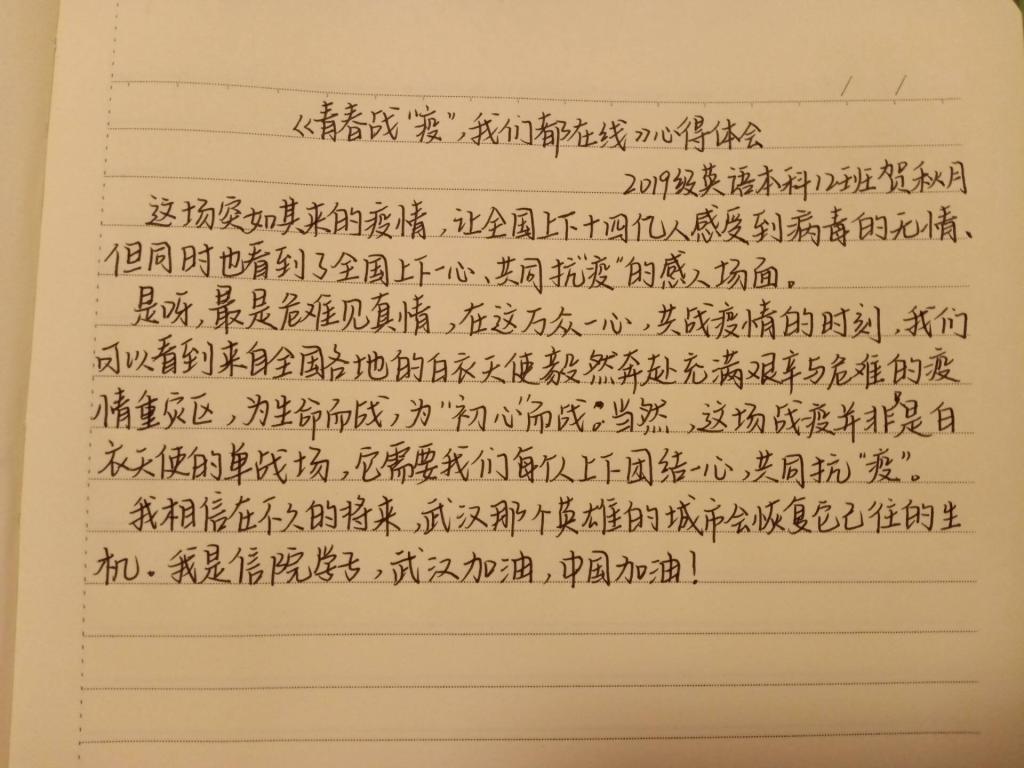 《青春战“疫”,我们都在线》心得体会
2019级英语本科12班贺秋月
这场突如其来的疫情,让全国上下十四亿人感受到病毒的无情、
但同时也看到了全国上下一心、共同抗“疫”的感人场面。
是呀,最是危难见真情,在这万众一心,共战疫情的时刻,我们
可以看到来自全国各地的白衣天使毅然奔赴充满艰辛与危难的疫
情重灾区,为生命而战,为“初心”而战。当然,这场战疫并非是白
衣天使的单战场,它需要我们每个人上下团结一心,共同抗“疫”。
我相信在不久的将来,武汉那个英雄的城市会恢复它已往的生
机。我是信院学子,武汉加油,中国加油!